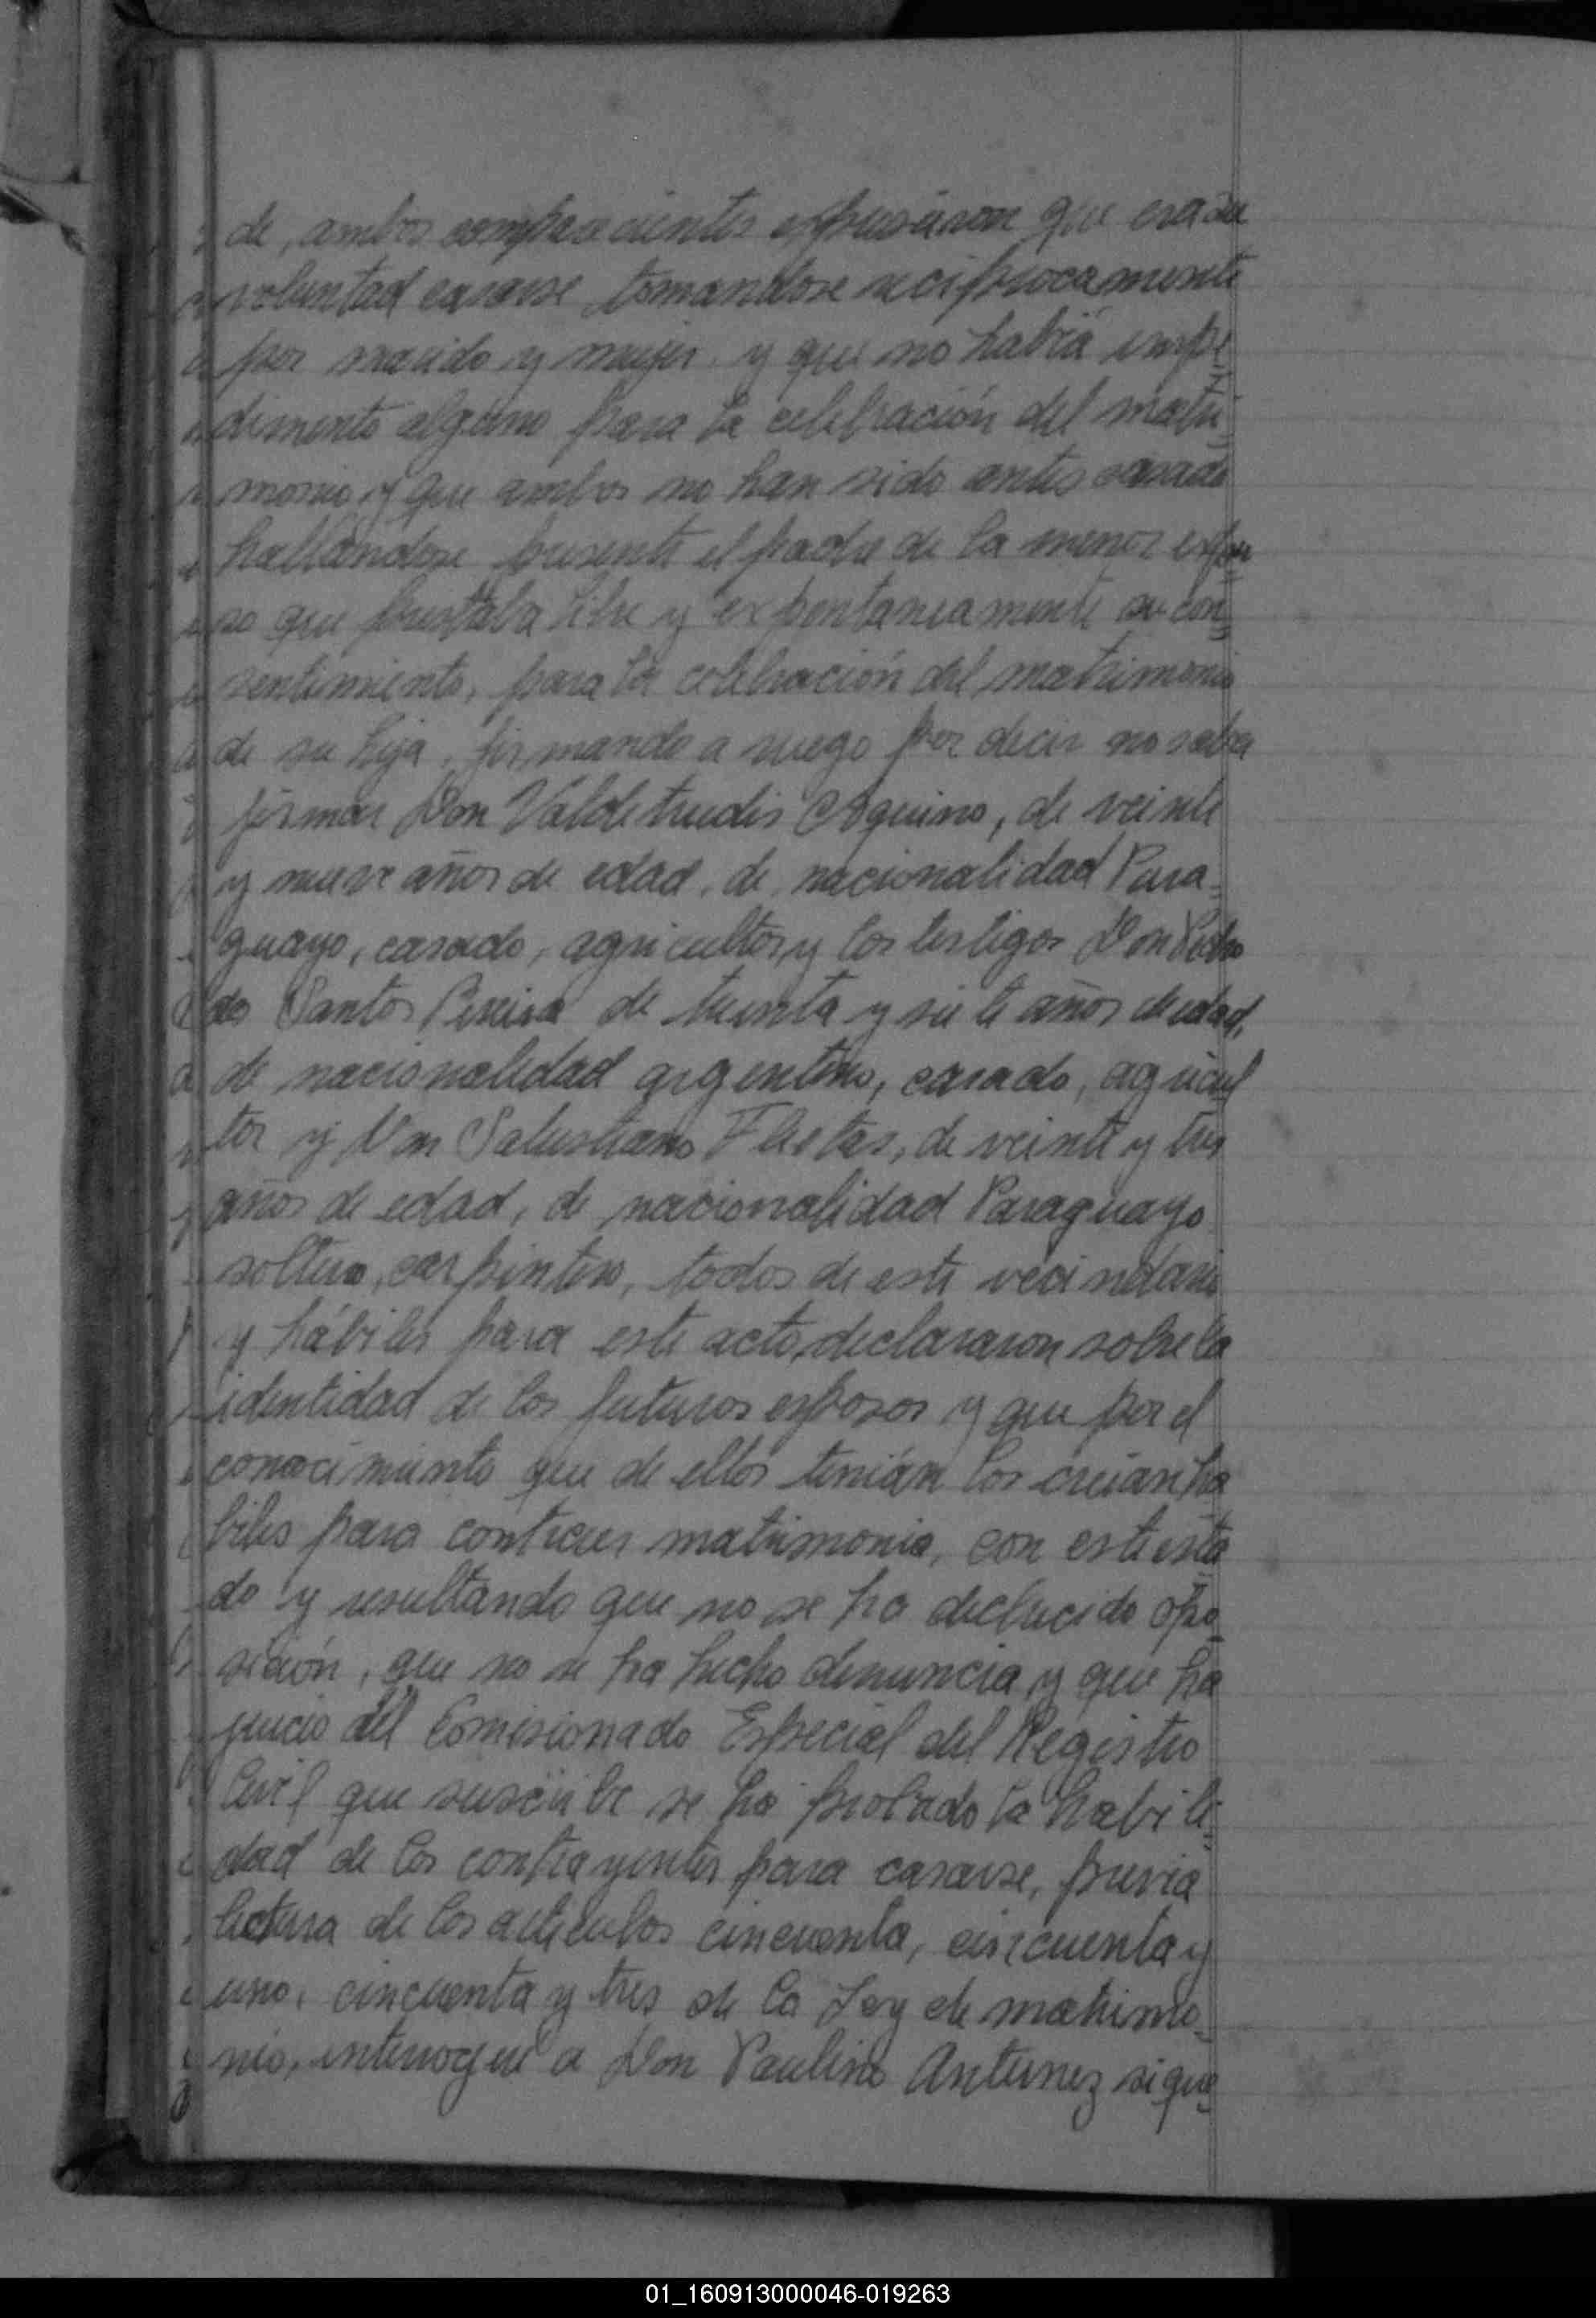 de, ambos comparecientes expresaron que era su
voluntad casarse tomandose reciprocamente
por marido y mujer y que no habiá impe=
dimento alguno para la celebración del matri=
monio, y que ambos no han sido antes casado
hallándose presente el padre de la menor expre=
so que prestaba libre y expontaneamente su con=
sentimiento, para la celebración del matrimonio
de su hija, firmando a ruego por decir no saber
firmar Don Valdetrudis Aquino, de veinte
y nueve años de edad, de nacionalidad Para=
guayo, casado, agricultor, y los testigos Don Pedro
dos Santos Pereira de treinta y siete años de edad,
de nacionalidad argentino, casado, agricul
tor y Don Salustiano Fleitas, de veinte y tres
años de edad, de nacionalidad Paraguayo
soltero, carpintero, todos de este vecindario
y hábiles para este acto, declararon sobre la
identidad de los futuros esposos y que por el
conocimiento que de ellos tenián los creian ha
biles para contraer matrimonio, con este esta
do y resultando que no se ha deducido opo
sición, que no se ha hecho denuncia y que ha
juicio del Comisionado Especial del Registro
Civil que suscribe se ha probado la habili=
dad de los contrayentes para casarse, previa
lectura de los articulos cincuenta, cincuenta y
uno, cincuenta y tres de la Ley de matrimo=
nio, interrogué a Don Paulino Antunez si que=
01_160913000046-019263